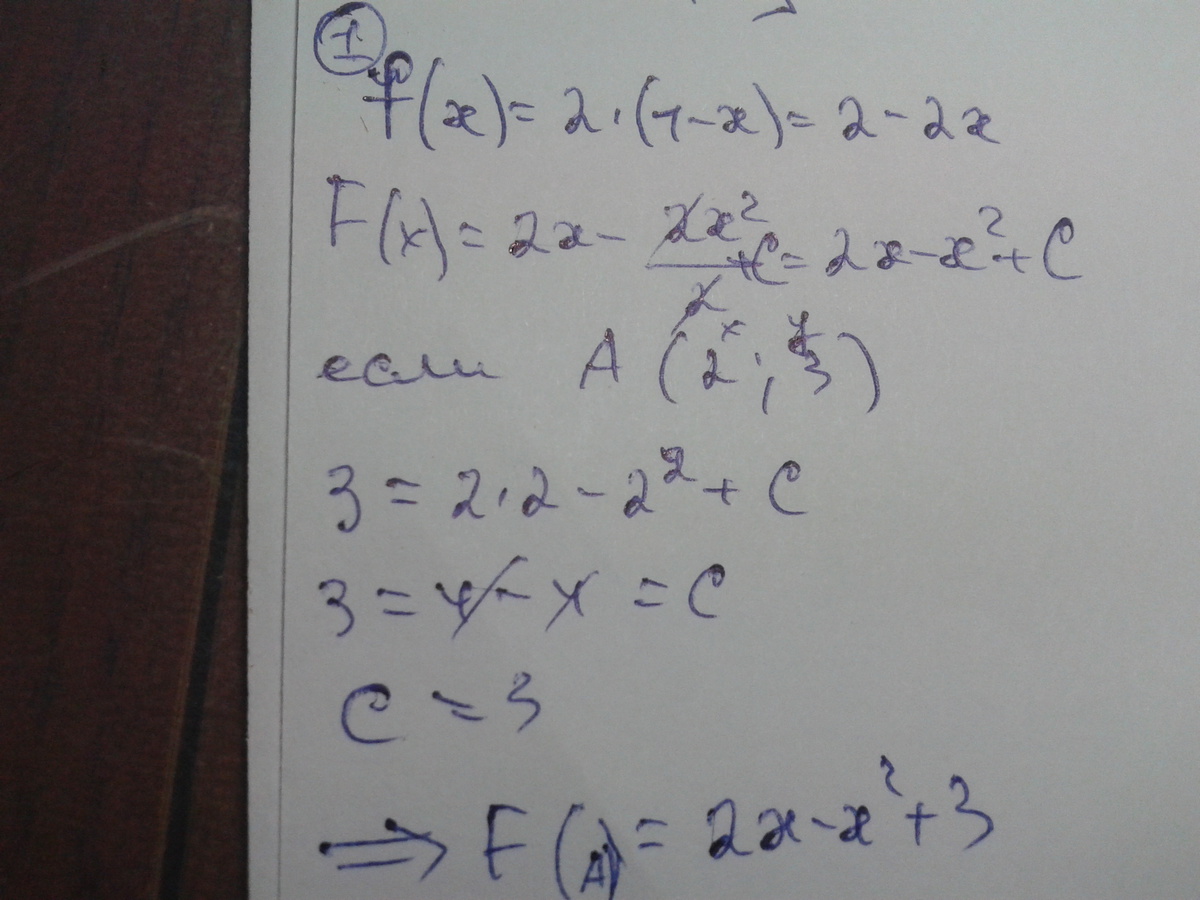 1
f(x) = 2·(1-x) = 2-2x
F(x) = 2x - 2x²/2 + C = 2x - x² + C
если A (2; 3)
x y
3 = 2·2 - 2² + C
3 = 4 - 4 = C
C = 3
⇒ F(A) = 2x - x² + 3